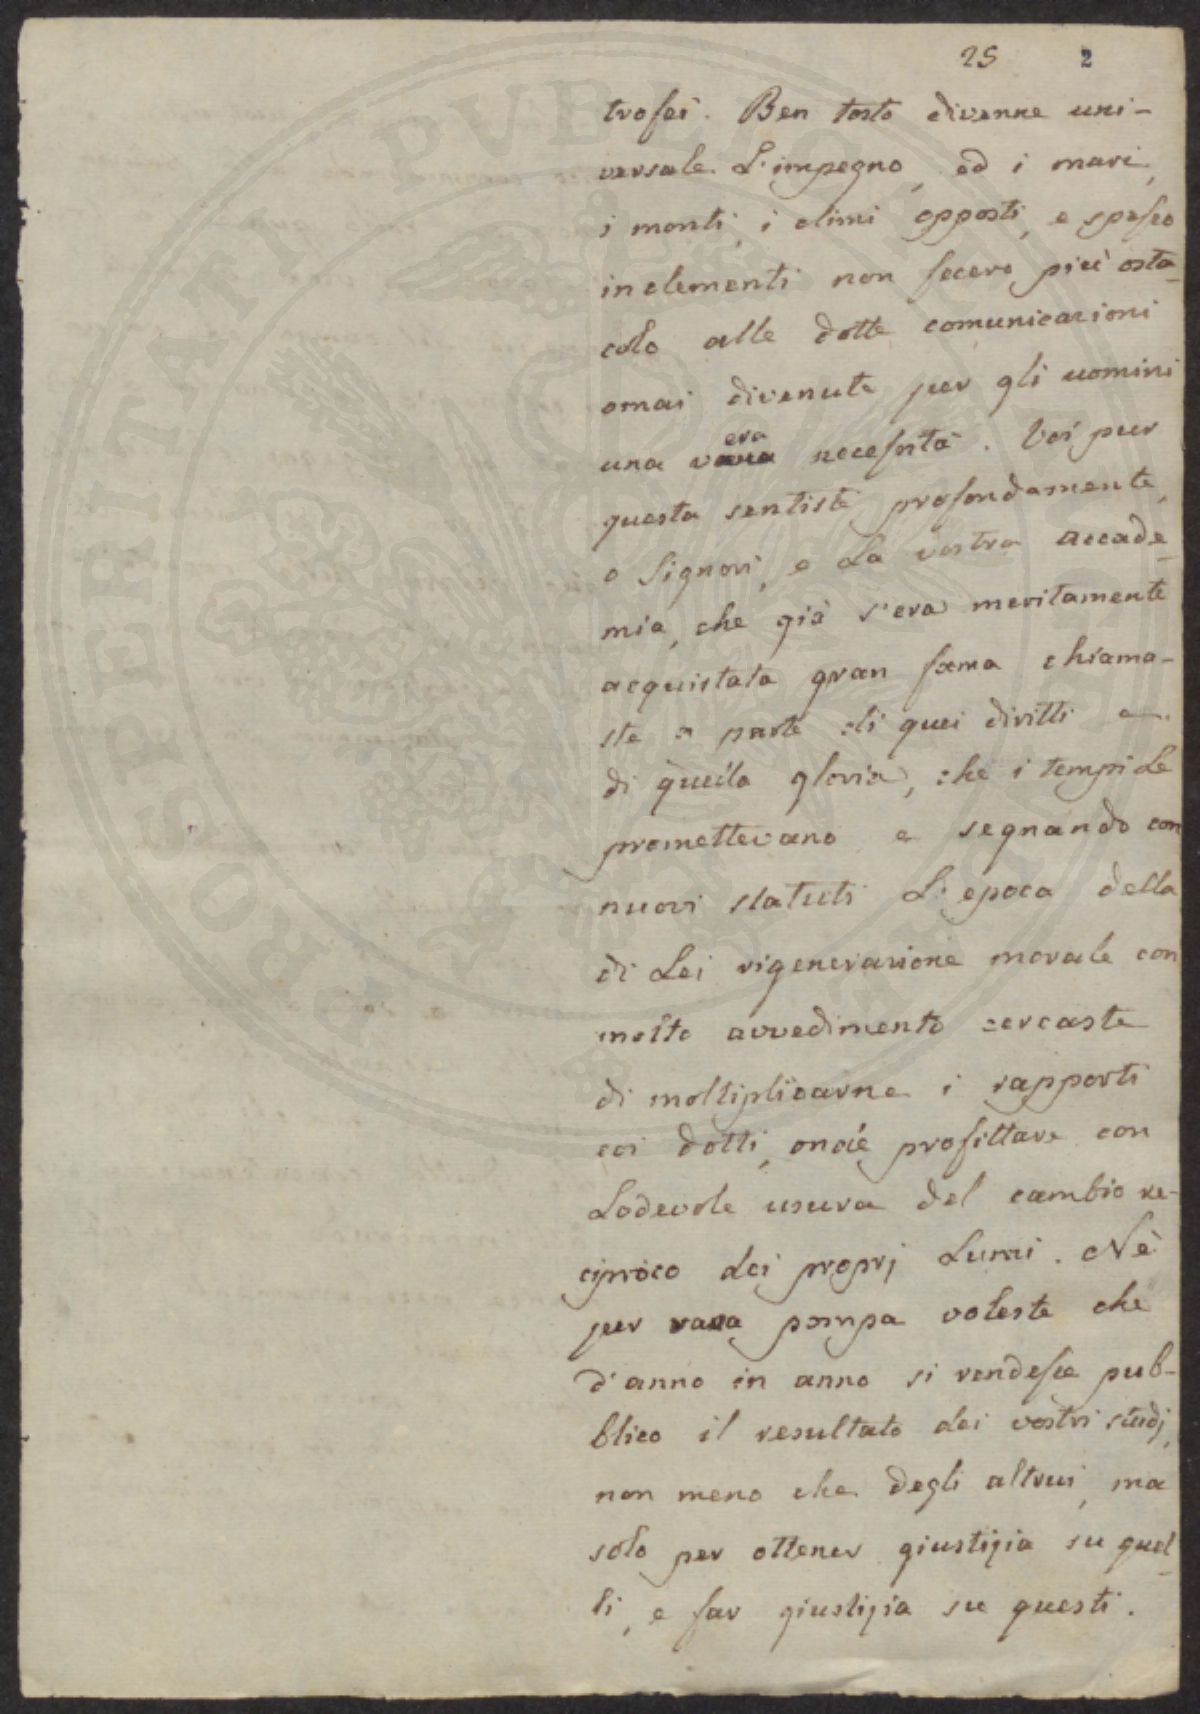 25 2
trofei. Ben tosto divenne uni-
versale L'impegno, ed i mari,
i monti, i climi opposti, e spesso
inclementi non fecero più osta-
colo alle dotte comunicazioni
omai divenute per gli uomini
era
una necessità. Voi pur
questa sentiste profondamente,
o Signori, e La vostra Accade-
mia, che già s'era meritamente
acquistata gran fama chiama-
ste a parte di quei diritti e
di quella gloria, che i tempi Le
promettevano e segnando con
nuovi statuti L'epoca della
di Lei rigenerazione morale con
molto avvedimento cercaste
di moltiplicarne i rapporti
coi dotti, onde profittare con
Lodevole usura del cambio re-
ciproco dei proprj Lumi. Nè
per vana pompa voleste che
d'anno in anno si rendesse pub-
blico il resultato dei vostri studj,
non meno che degli altrui, ma
solo per ottener giustizia su quel-
li, e far giustizia su questi.
PVBLICAE
PROSPERITATI